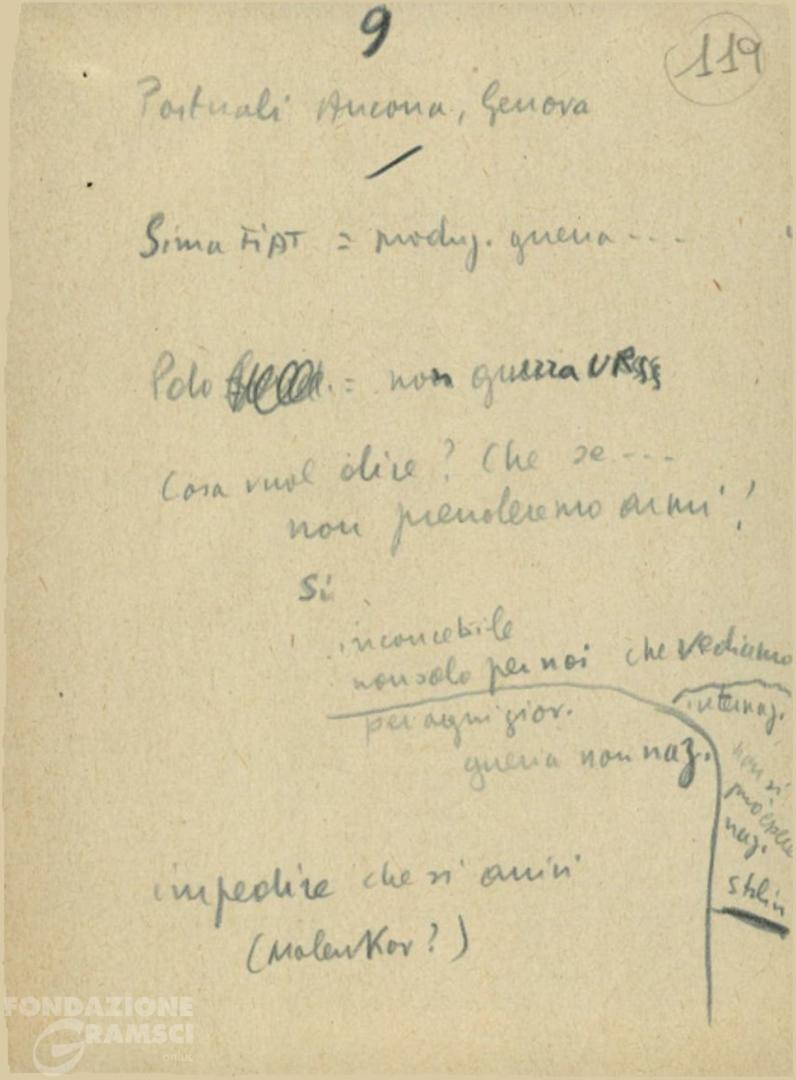 9
119
Portuali Ancona, Genova
Sima FIAT = produz. guerra ...
Polo = non guerra URSS
Cosa vuol dire? Che se ...
non prenderemo armi!
Sì
inconcebile
non solo per noi che vediamo
internaz.
per ogni giov.
guerra non naz.
non si
può essere
naz.
Stalin
impedire che si arrivi
(Malenkov?)
FONDAZIONE
GRAMSCI
onlus